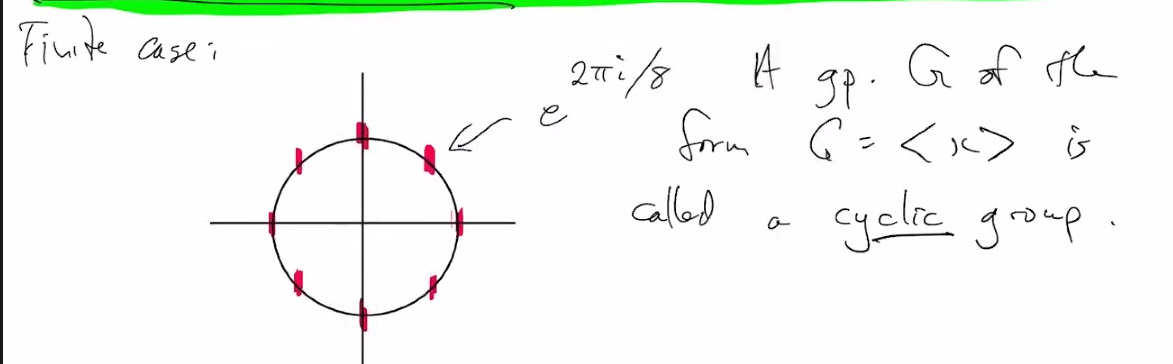 Finite case:
e^{2πi/8}
A gp. G of the
form G = <x> is
called a cyclic group.